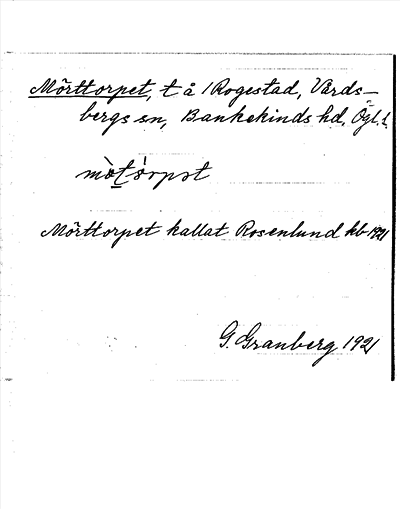 Mörttorpet, t å /Rogestad, Vårds-
bergs sn, Bankekinds hd, Ögl. l.
mòt̲órpət
Mörttorpet kallat Rosenlund kb 1921
G. Granberg 1921